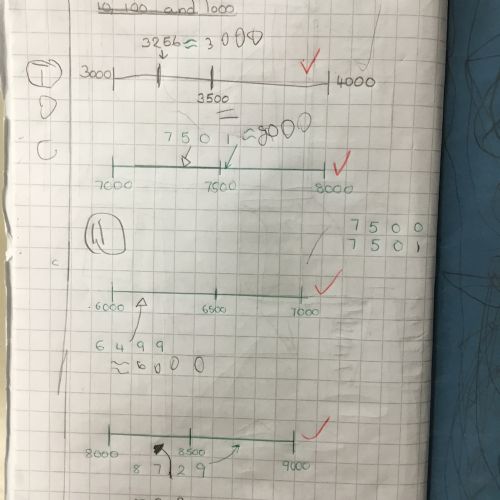 10, 100 and 1000
3256 ≈ 3000
3000 4000
3500
7501 ≈ 8000
7000 7500 8000
7500
7501
6000 6500 7000
6499
≈ 6000
8000 8500 9000
8729